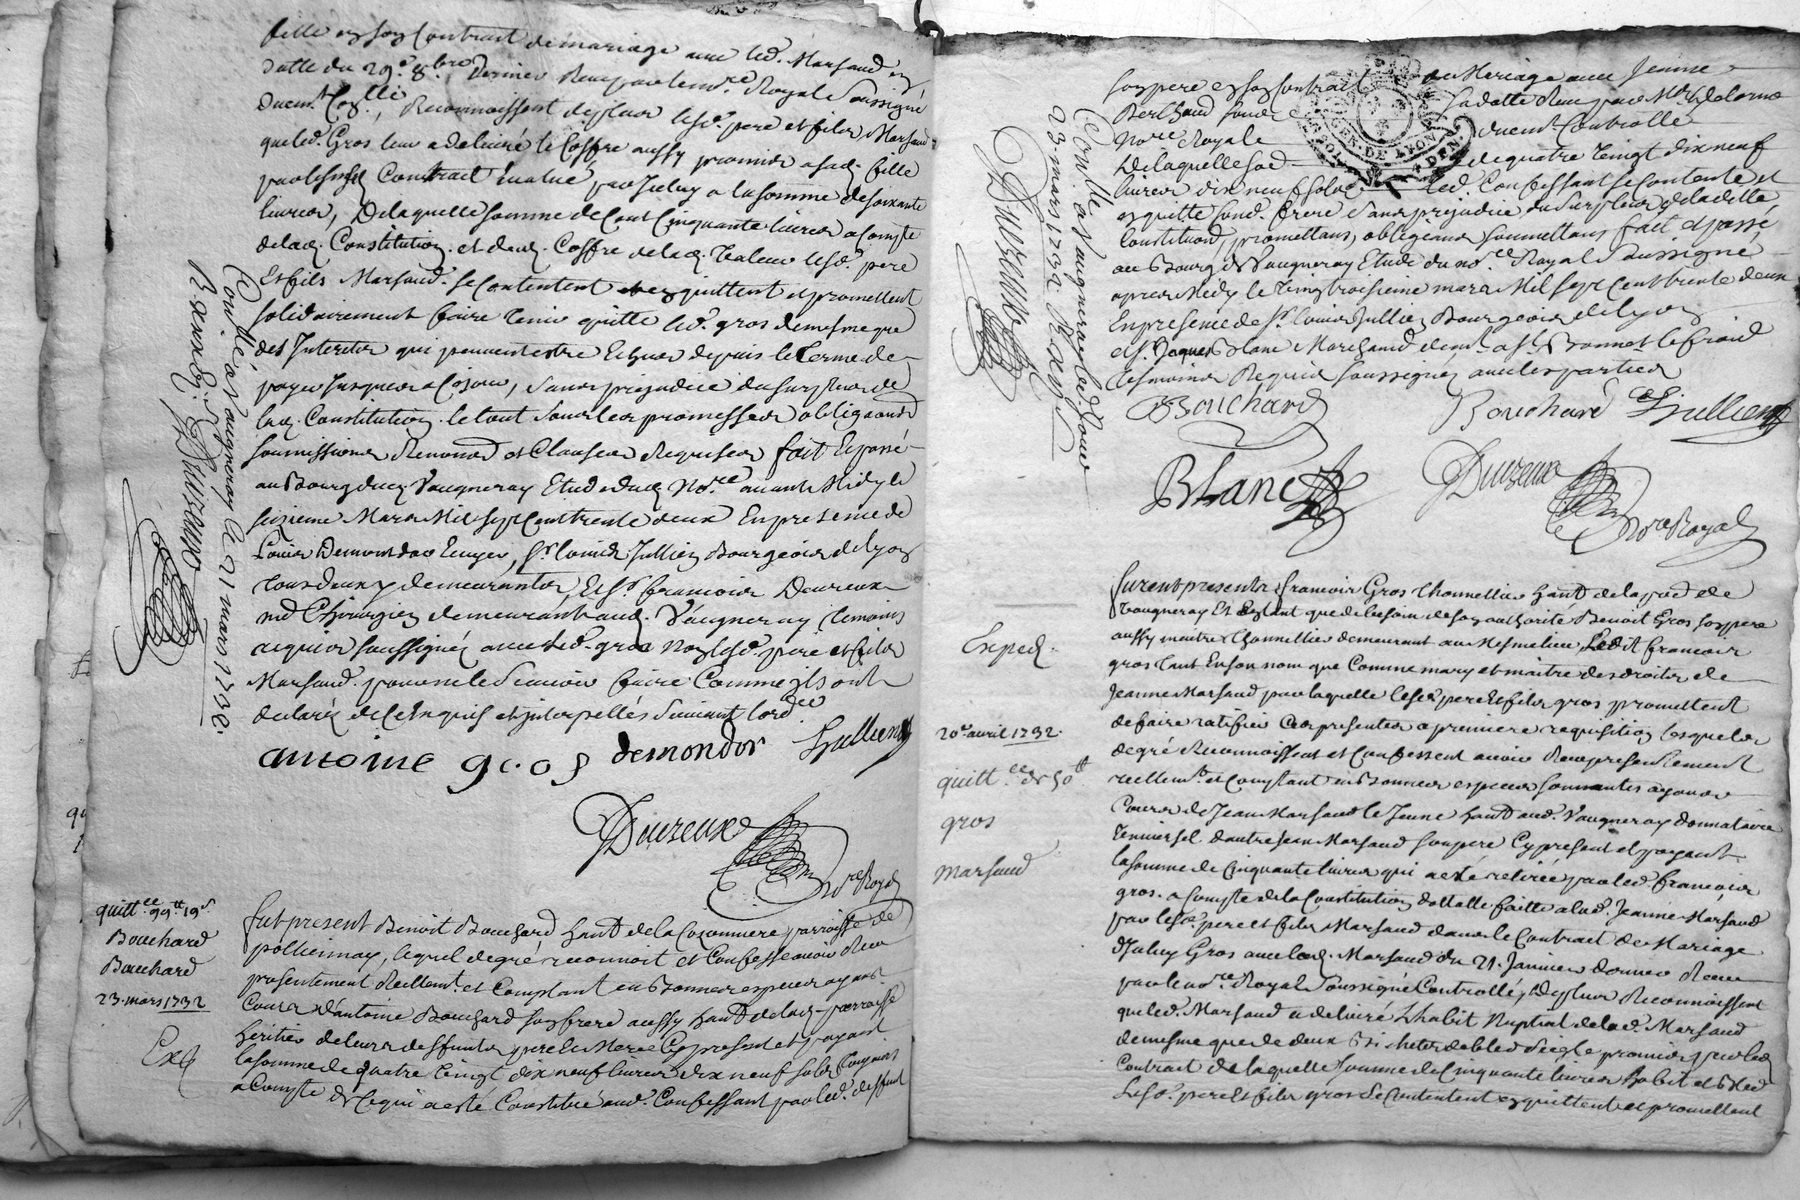 fille en son Contrait de mariage avec led. Marsaud en
datte du 29.e 8.bre dernier Receu par le no.re Royal Soussigné
duem.t Con.llé, Reconnoissent de plus lesd. pere et fils Marsaud
que led. Gros leur a delivré le Coffre aussy promis a sad. fille
par lesusd. Contrait Evalué par Icelluy a la somme de soixante
livres, De laquelle somme de Cent Cinquante livres a Compte
de lad. Constitution et dud. Coffre de lad. Valeur lesd. pere
Et fils Marsaud se Contentent en quittent et promettent
solidairement faire tenir quitte led. gros de mesme que
des Interets qui peuvent estre Echus depuis le terme de
payer Jusques a Cejour, sans prejudice du surplus de
lad. Constitution. le tout sous les promesses obligaons
soumissions Renonons et Clauses Requises fait Et passé
au Bourg dud. Vaugneray Etude dud. No.re avant Midy le
seizieme Mars Mil sept Cent trente deux En presence de
Louis Demondor Ecuyer, Sr. louis Jullien Bourgeois de lyon
tous deux y demeurants, Et Sr. francois Dureux
md Chirurgien demeurant aud. Vaugneray temoins
requis soussignés avec led. gros Non lesd. pere et fils
Marsaud pour ne le scavoir faire Comme ils ont
declaré de ce Enquis et Interpellés suivant lord.ce
antoine gros demondor Jullien
Dureux
No.re Royal
Con.llé a Vaugneray le 21 mars 1732.
R douze s. Dureux
quitt.ce 99tt 19s
Bouchard
Bouchard
23. mars 1732
Exp
fut present Benoit Bouchard hant de la parroisse de
pollionnay, lequel de gré reconnoit et Confesse avoir Receu
presentement Reellem.t et Comptant en Bonnes especes ayant
Cours d'antoine Bouchard son frere aussy hant de lad. parroisse
heritier de leurs deffunts pere et Mere Cy present et payant
la somme de quatre vingt dix neuf livres dix neuf sols
a Compte de Ce qui a esté Constitué aud. Confessant par led. deffunt
son pere en son Contrait de Mariage avec Jeanne
Berthaud sous sa datte Receu par Me Delorme
No.re Royal duem.t Controllé
De laquelle sod. de quatre vingt dix neuf
livres dix neuf sols led. Confessant se Contente et
en quitte sond. frere sans prejudice du surplus de ladite
Constituon, promettans, obligeans soumettans fait et passé
au Bourg de Vaugneray Etude du no.re Royal Soussigné
apres Midy le vingt troisieme mars Mil sept Cent trente deux
En presence de Sr. louis Jullien Bourgeois de lyon
et Sr. Jaques Blanc Marchand dem.t a St. Bonnet le froid
temoins Requis soussignez avec les parties
BBouchard Bouchard Jullien
Blanc Dureux
No.re Royal
Con.llé a Vaugneray led. Jour
23. mars 1732.
Dureux
Exped.
20.e avril 1732.
quitt.ce de 50tt
gros
marsaud
furent presents francois Gros thonnellier hant de la parr. de
Vaugneray Et Entant que de besoin de son authorité Benoit Gros son pere
aussy maitre thonnellier demeurant aux Ledit francois
gros tant En son nom que Comme mary et maitre des droits de
Jeanne Marsaud par laquelle lesd. pere et fils gros promettent
de faire ratifier Ces presentes a premiere requisition lesquels
de gré Reconnoissent et Confessent avoir Receu presentement
reellem.t et Comptant en Bonnes especes sonnantes ayant
Cours de Jean Marsaud le Jeune hant aud. Vaugneray donnataire
Universel d'autre Jean Marsaud son pere Cy present et payant
la somme de Cinquante livres qui a esté retirée par led. francois
gros. a Compte de la Constitution dottalle faitte a lad. Jeanne Marsaud
par lesd. pere et fils Marsaud dans le Contrait de Mariage
d'Icelluy Gros avec lad. Marsaud du 21. Janvier dernier Receu
par le no.re Royal Soussigné Controllé, De plus Reconnoissent
que led. Marsaud a delivré l'habit Nuptial de lad. Marsaud
de mesme que de deux Bichets de bled seigle promis par led.
Contrait de laquelle somme de Cinquante livres habit et Bled
Lesd. pere Et fils gros se Contentent en quittent et promettent